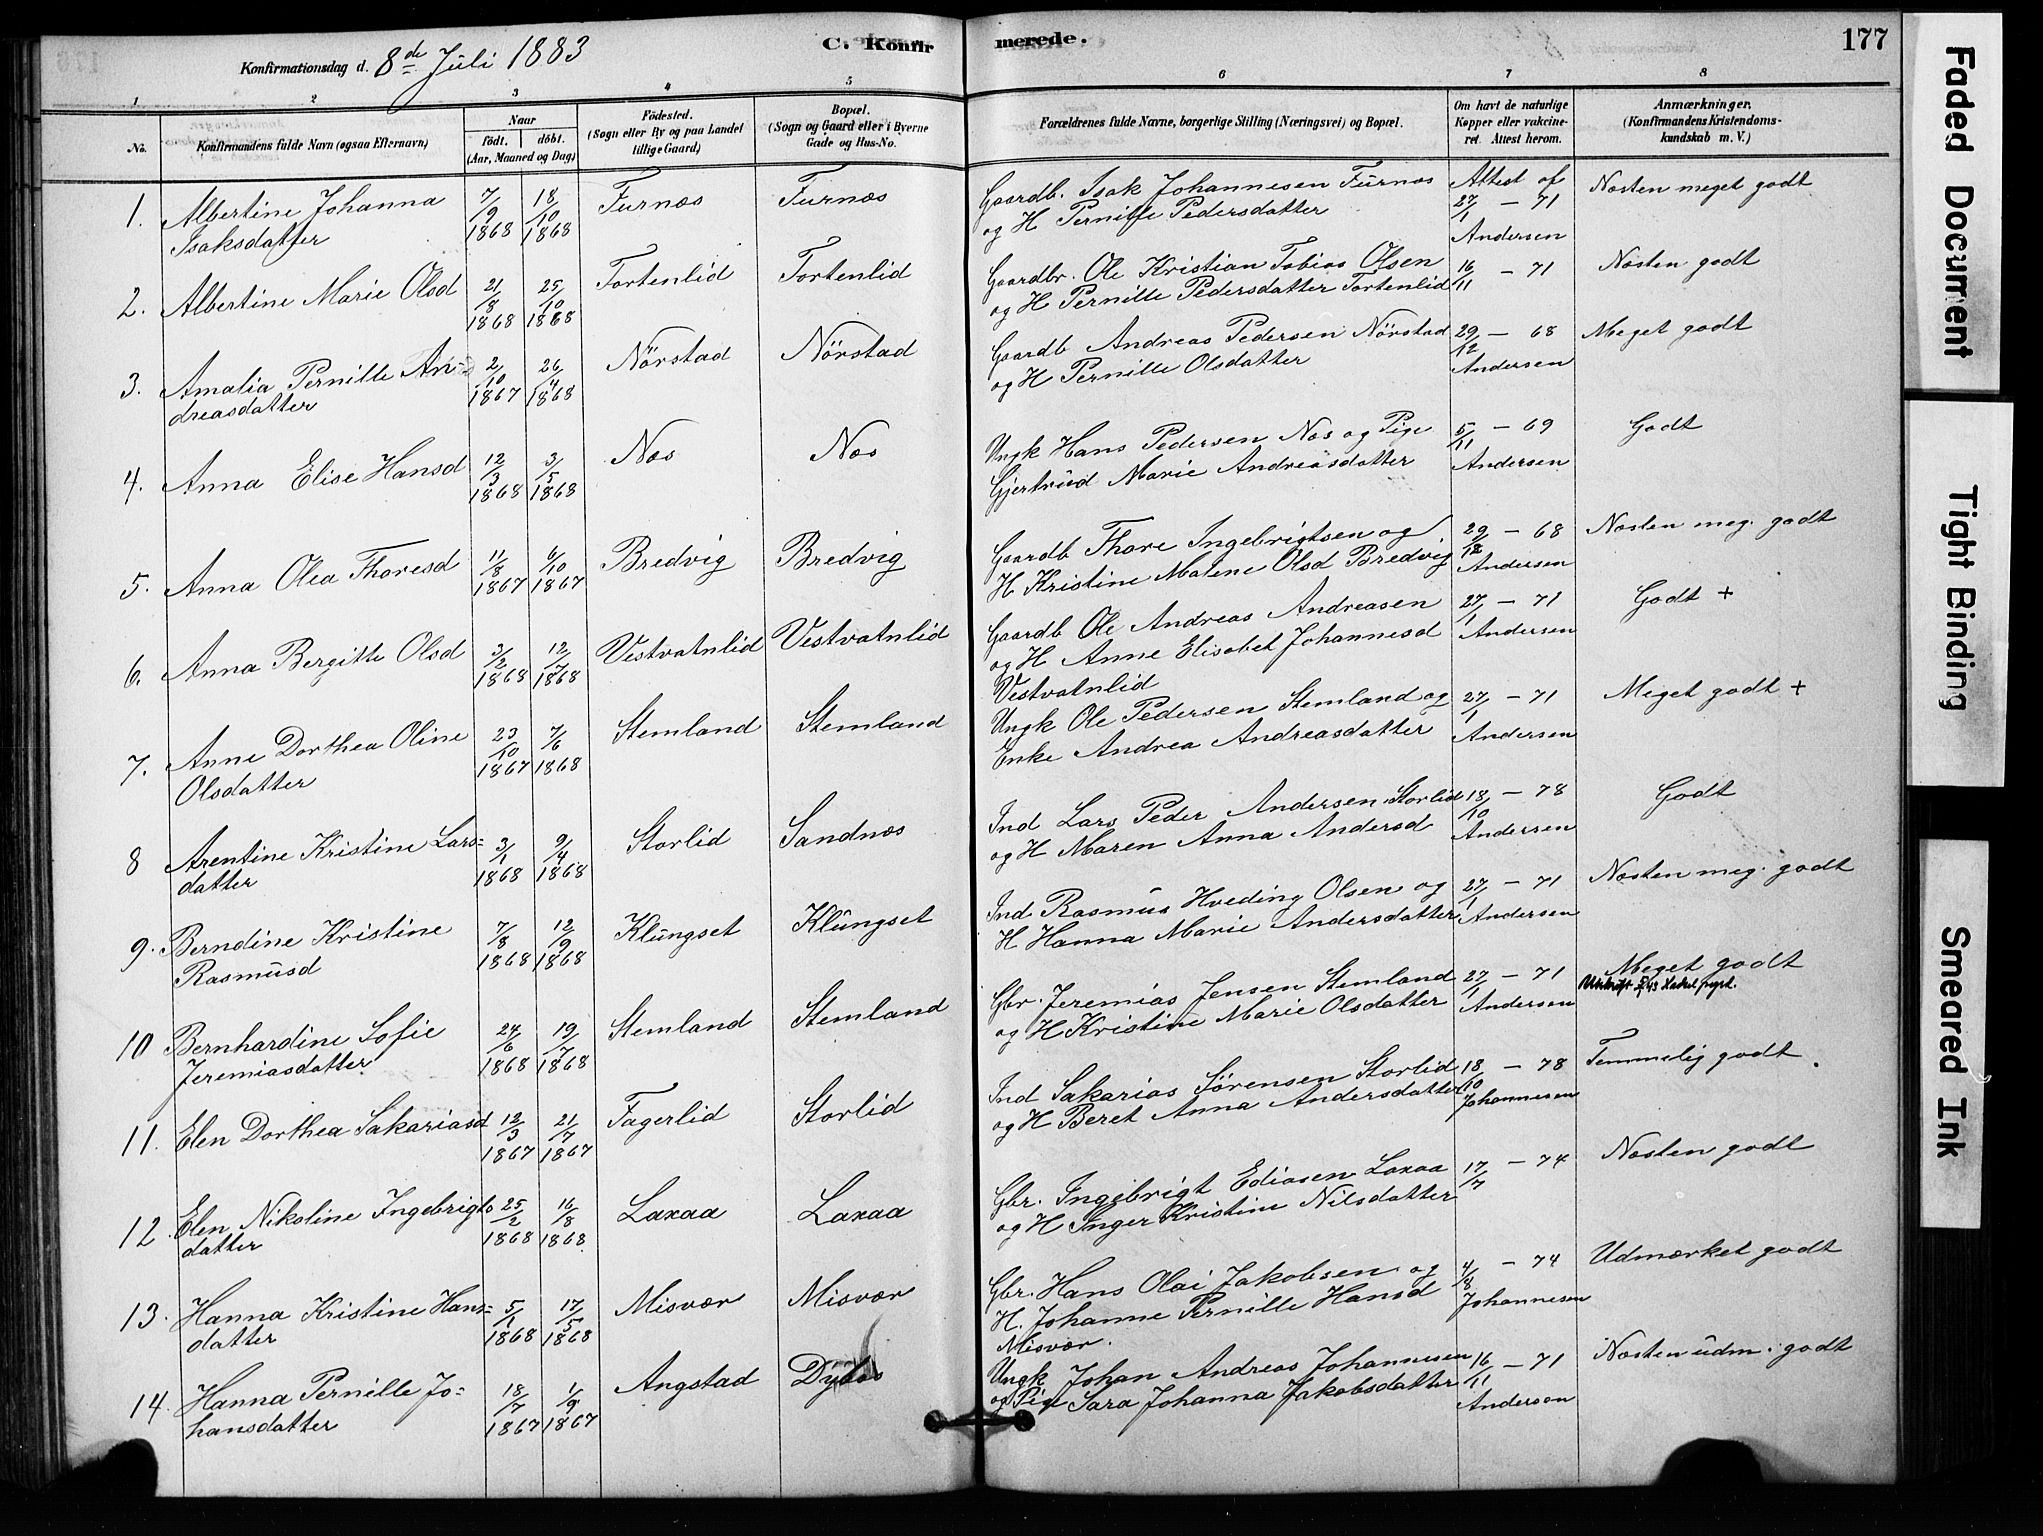 Konfirmationsdag d. 8de Juli 1883
C. Konfirmerede.
177
1 2 3 4 5 6 7 8
No.
Konfirmandens fulde Navn (ogsaa Efternavn)
Naar
født. døbt.
(Aar, Maaned og Dag)
Fødested.
(Sogn eller By og paa Landet
tillige Gaard)
Bopæl.
(Sogn og Gaard eller i Byerne
Gade og Hus-No.
Forældrenes fulde Navne, borgerlige Stilling (Næringsvei) og Bopæl.
Om havt de naturlige
Kopper eller vakcine-
ret. Attest herom.
Anmærkninger.
(Konfirmandens Kristendoms-
kundskab m. V.)
1. Albertine Johanna Isaksdatter 7/9 1868 18/10 1868 Furnæs Furnæs Gaardb. Isak Johannesen Furnæs og H Pernille Pedersdatter Attest af 27/1 - 71 Andersen Næsten meget godt
2. Albertine Marie Olsd 21/8 1868 25/10 1868 Tortenlid Tortenlid Gaardbr. Ole Kristian Tobias Olsen og H Pernille Pedersdatter Tortenlid 16/11 - 71 Næsten godt
3. Amalia Pernille Andreasdatter 2/10 1867 26/4 1868 Nörstad Nörstad Gaardb Andreas Pedersen Nörstad og H Pernille Olsdatter 29/12 - 68 Andersen Meget godt
4. Anna Elise Hansd 12/3 1868 3/5 1868 Næs Næs Ungk Hans Pedersen Næs og Pige Gjertrud Marie Andreasdatter 5/11 - 69 Andersen Godt
5. Anna Olea Thoresd 11/8 1867 6/10 1867 Bredvig Bredvig Gaardb Thore Ingebrigtsen og H Kristine Malene Olsd Bredvig 29/12 - 68 Andersen Næsten meg. godt
6. Anna Bergitte Olsd 3/2 1868 12/7 1868 Vestvatnlid Vestvatnlid Gaardb Ole Andreas Andreasen og H Anne Elisabet Johannesd Vestvatnlid 27/1 - 71 Andersen Godt +
7. Anne Dorthea Oline Olsdatter 23/10 1867 7/6 1868 Stemland Stemland Ungk Ole Pedersen Stemland og Enke Andrea Andreasdatter 27/1 - 71 Andersen Meget godt +
8 Arentine Kristine Lars=datter 3/1 1868 9/4 1868 Storlid Sandnæs Ind Lars Peder Andersen Storlid og H Maren Anna Andersd 18/10 - 78 Andersen Godt
9. Berndine Kristine Rasmusd 7/8 1868 12/9 1868 Klungset Klungset Ind Rasmus Hveding Olsen og H Hanna Marie Andersdatter 27/1 - 71 Andersen Næsten meg. godt
10 Bernhardine Sofie Jeremiasdatter 24/6 1868 19/7 1868 Stemland Stemland Gbr. Jeremias Jensen Stemland og H Kristine Marie Olsdatter 27/1 - 71 Andersen Meget godt
11. Elen Dorthea Sakariasd 12/3 1867 21/7 1867 Fagerlid Storlid Ind Sakarias Sörensen Storlid og H Beret Anna Andersdatter 18/10 - 78 Johannesen Temmelig godt
12. Elen Nikoline Ingebrigtsdatter 25/2 1868 16/8 1868 Laxaa Laxaa Gbr. Ingebrigt Ediasen Laxaa og H Inger Kristine Nilsdatter 17/7 - 74 Næsten godt
13. Hanna Kristine Hans=datter 5/1 1868 17/5 1868 Misvær Misvær Gbr. Hans Olai Jakobsen og H. Johanne Pernille Hansd Misvær. 4/8 - 74 Johannesen Udmærket godt
14. Hanna Pernille Jo=hansdatter 18/7 1867 1/9 1867 Angstad Ungk Johan Andreas Johannesen og Pige Sara Johanna Jakobsdatter 16/11 - 71 Anderson Næsten udm. godt
Faded Document
Tight Binding
Smeared Ink